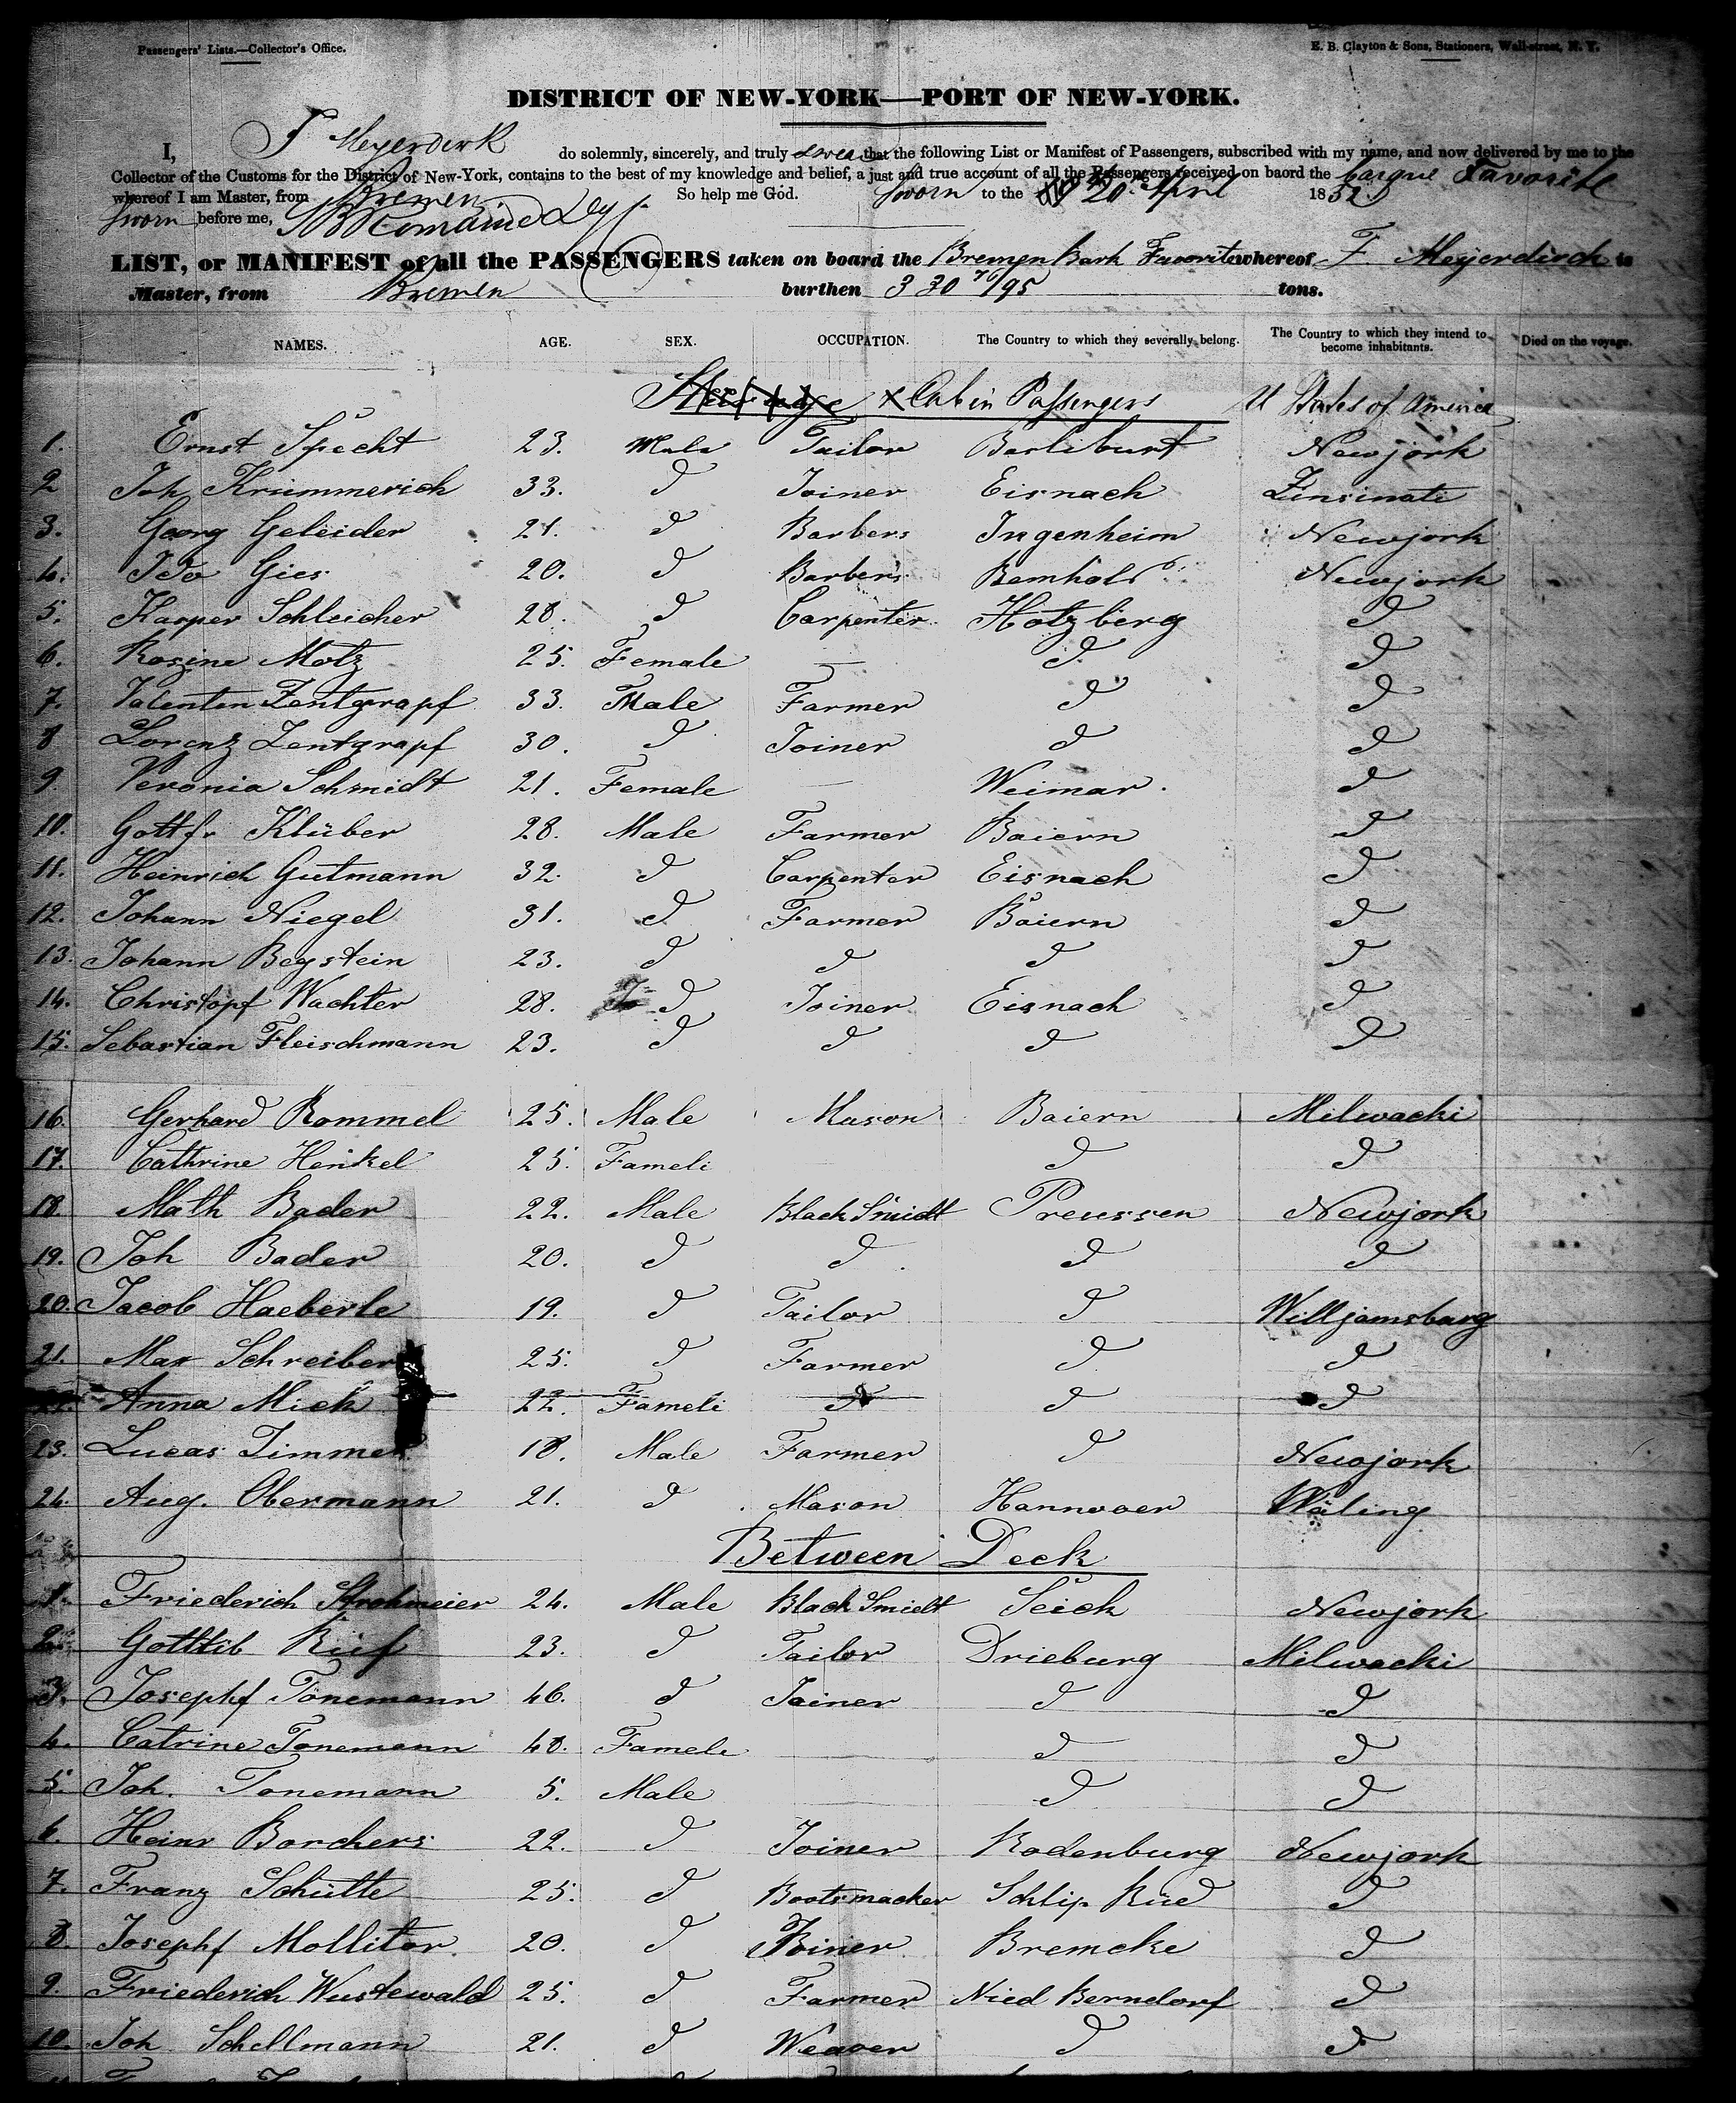 Passengers' Lists.—Collector's Office.
E. B. Clayton & Sons, Stationers, Wall-street, N. Y.
DISTRICT OF NEW-YORK—PORT OF NEW-YORK.
I, F Meyerdirk do solemnly, sincerely, and truly swear that the following List or Manifest of Passengers, subscribed with my name, and now delivered by me to the
Collector of the Customs for the District of New-York, contains to the best of my knowledge and belief, a just and true account of all the Passengers received on baord the barque Favorite
whereof I am Master, from Bremen So help me God. Sworn to the 20 April 1852
Sworn before me,
LIST, or MANIFEST of all the PASSENGERS taken on board the Bremen Bark Favorite whereof F Meyerdirck is
Master, from Bremen burthen 330 76/95 tons.
NAMES. AGE. SEX. OCCUPATION. The Country to which they severally belong. The Country to which they intend to become inhabitants. Died on the voyage.
Steerage x Cabin Passengers U States of America
1. Ernst Specht 23. Male Tailor Berliburt Newjork
2 Joh Krümmerich 33. d Joiner Eisnach Zinsinati
3. Georg Geleider 21. d Barbers Ingenheim Newjork
4. Ido Gies 20. d Barbers Bemhold Newjork
5. Kasper Schleicher 28. d Carpenter Hotzberg d
6. Rosine Motz 25. Female — d d
7. Valentin Zentgrapf 33. Male Farmer d d
8 Lorenz Zentgrapf 30. d Joiner d d
9. Veronia Schmidt 21. Female — Weimar. d
10. Gottfr Klüber 28. Male Farmer Baiern d
11. Heinrich Gutmann 32. d Carpenter Eisnach d
12. Johann Niegel 31. d Farmer Baiern d
13. Johann Begstein 23. d d d d
14. Christopf Wachter 28. d Joiner Eisnach d
15. Sebastian Fleischmann 23. d d d d
16. Gerhard Rommel 25. Male Mason Baiern Milwacki
17. Cathrine Henkel 25. Fameli d d
18 Math Bader 22. Male Black Smidt Preussen Newjork
19. Joh Bader 20. d d d d
20. Jacob Haeberle 19. d Tailor d Willjamsburg
21. Max Schreiber 25. d Farmer d d
22. Anna Mick 22. Fameli d d d
23. Lucas Zimmer 18. Male Farmer d Newjork
24. Aug. Obermann 21. d Mason Hannover Wäling
Between Deck
1. Friederich Strohmeier 24. Male Black Smidt Seick Newjork
2. Gottlib Rüf 23. d Tailor Drieburg Milwacki
3. Josephf Tönemann 46. d Joiner d d
4. Catrine Tonemann 48. Famele d d
5. Joh. Tonemann 5. Male d d
6. Heinr Borchers 22. d Joiner Rodenburg Newjork
7. Franz Schütte 25. d Bootsmacker Schlip Rüd d
8. Josephf Mollitor 20. d Joiner Bremcke d
9. Friederich Wustewald 25. d Farmer Nied Berndorf d
10. Joh Schellmann 21. d Weaver d d